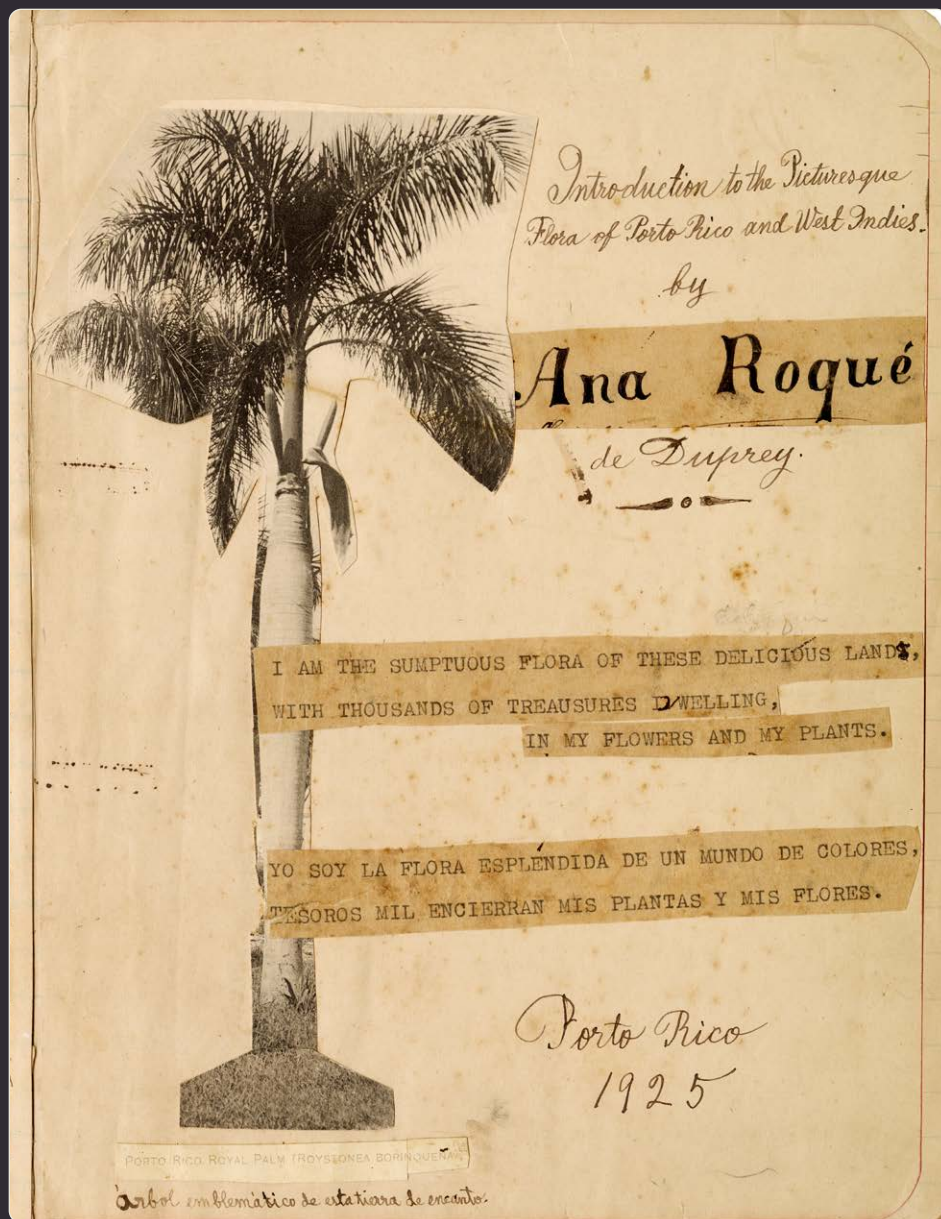 Introduction to the Picturesque
Flora of Porto Rico and West Indies.
by
Ana Roqué
de Duprey.
I AM THE SUMPTUOUS FLORA OF THESE DELICIOUS LANDS,
WITH THOUSANDS OF TREAUSURES DWELLING,
IN MY FLOWERS AND MY PLANTS.
YO SOY LA FLORA ESPLÉNDIDA DE UN MUNDO DE COLORES,
TESOROS MIL ENCIERRAN MIS PLANTAS Y MIS FLORES.
Porto Rico
1925
PORTO RICO ROYAL PALM (ROYSTONEA BORINQUEÑA)
Árbol emblemático de esta tierra de encanto.